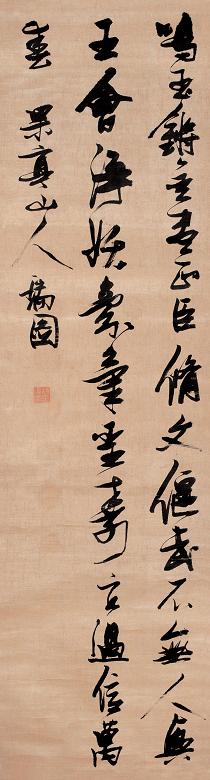 鳴玉鏘金盡正臣脩文偃武不無人興
王會淨妖氛氣聖壽宜過億萬
春 果亭山人 瑞圖